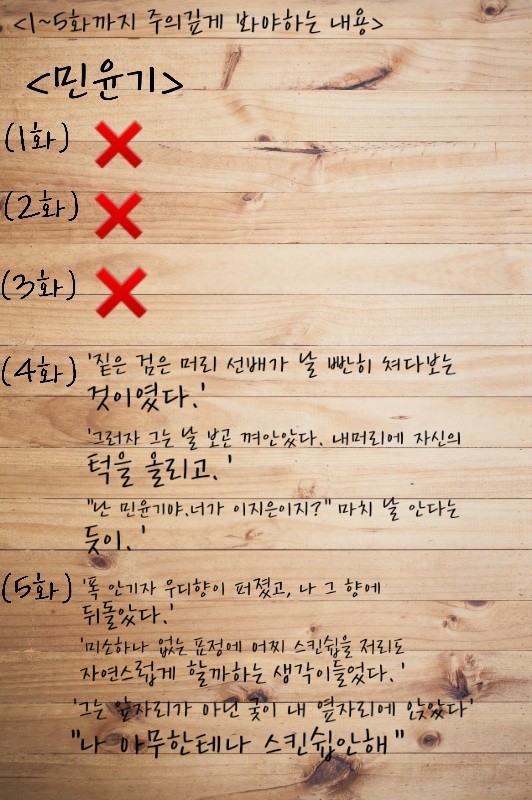 <1~5화까지 주의깊게 봐야하는 내용>
<민윤기>
(1화) ❌
(2화) ❌
(3화) ❌
(4화) '짙은 검은 머리 선배가 날 빤히 쳐다보는
것이였다.'
'그러자 그는 날 보곤 껴안았다. 내머리에 자신의
턱을 올리고.'
"난 민윤기야.너가 이지은이지?" 마치 날 안다는
듯이.'
(5화) '폭 안기자 우디향이 퍼졌고, 나 그 향에
뒤돌았다.'
'미소하나 없는 표정에 어찌 스킨쉽을 저리도
자연스럽게 할까하는 생각이들었다.'
'그는 앞자리가 아닌 굳이 내 옆자리에 앉았다'
"나 아무한테나 스킨쉽안해"